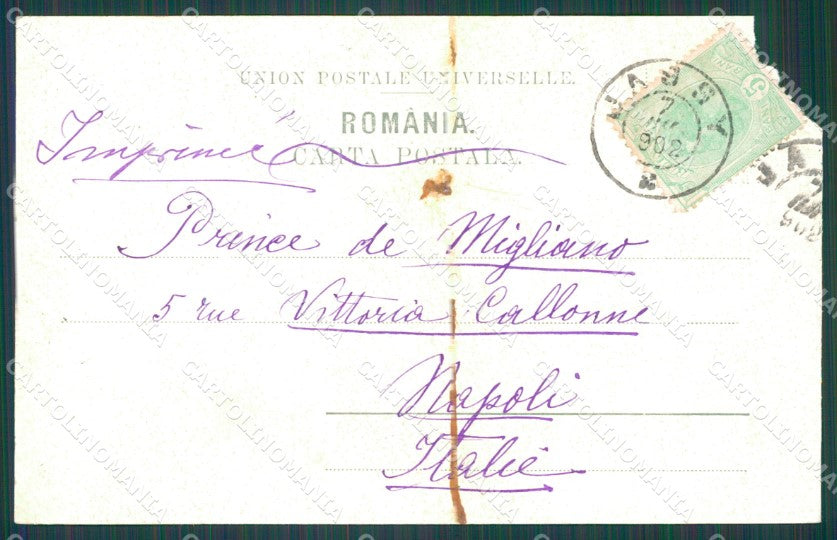 UNION POSTALE UNIVERSELLE.
ROMÂNIA.
CARTA POSTALA.
Imprimé
JASSY
7
902
Prince de Migliano
5 rue Vittoria Callonne
Napoli
Italie
5
CARTOLINOMANIA